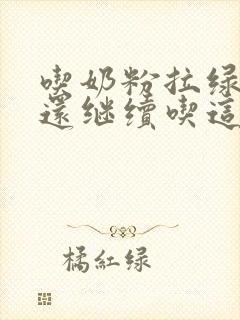 喫奶粉拉绿
還继續喫這
橘紅绿